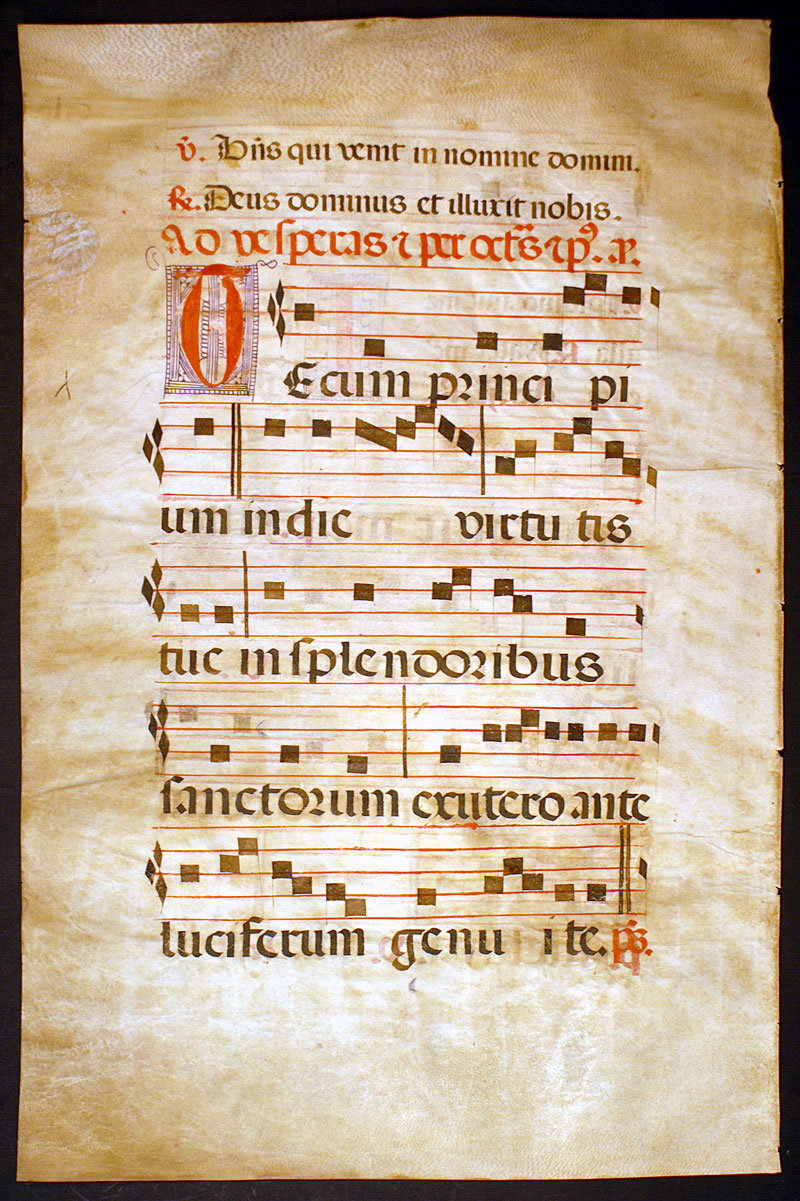 v̄. Bn̄s qui venit in nomine domini.
℟. Deus dominus et illuxit nobis.
Ad vesperas ⁊ per
TEcum princi pi
um in dic virtu tis
tue in splendoribus
sanctorum ex utero ante
luciferum genu i te. ps̄.